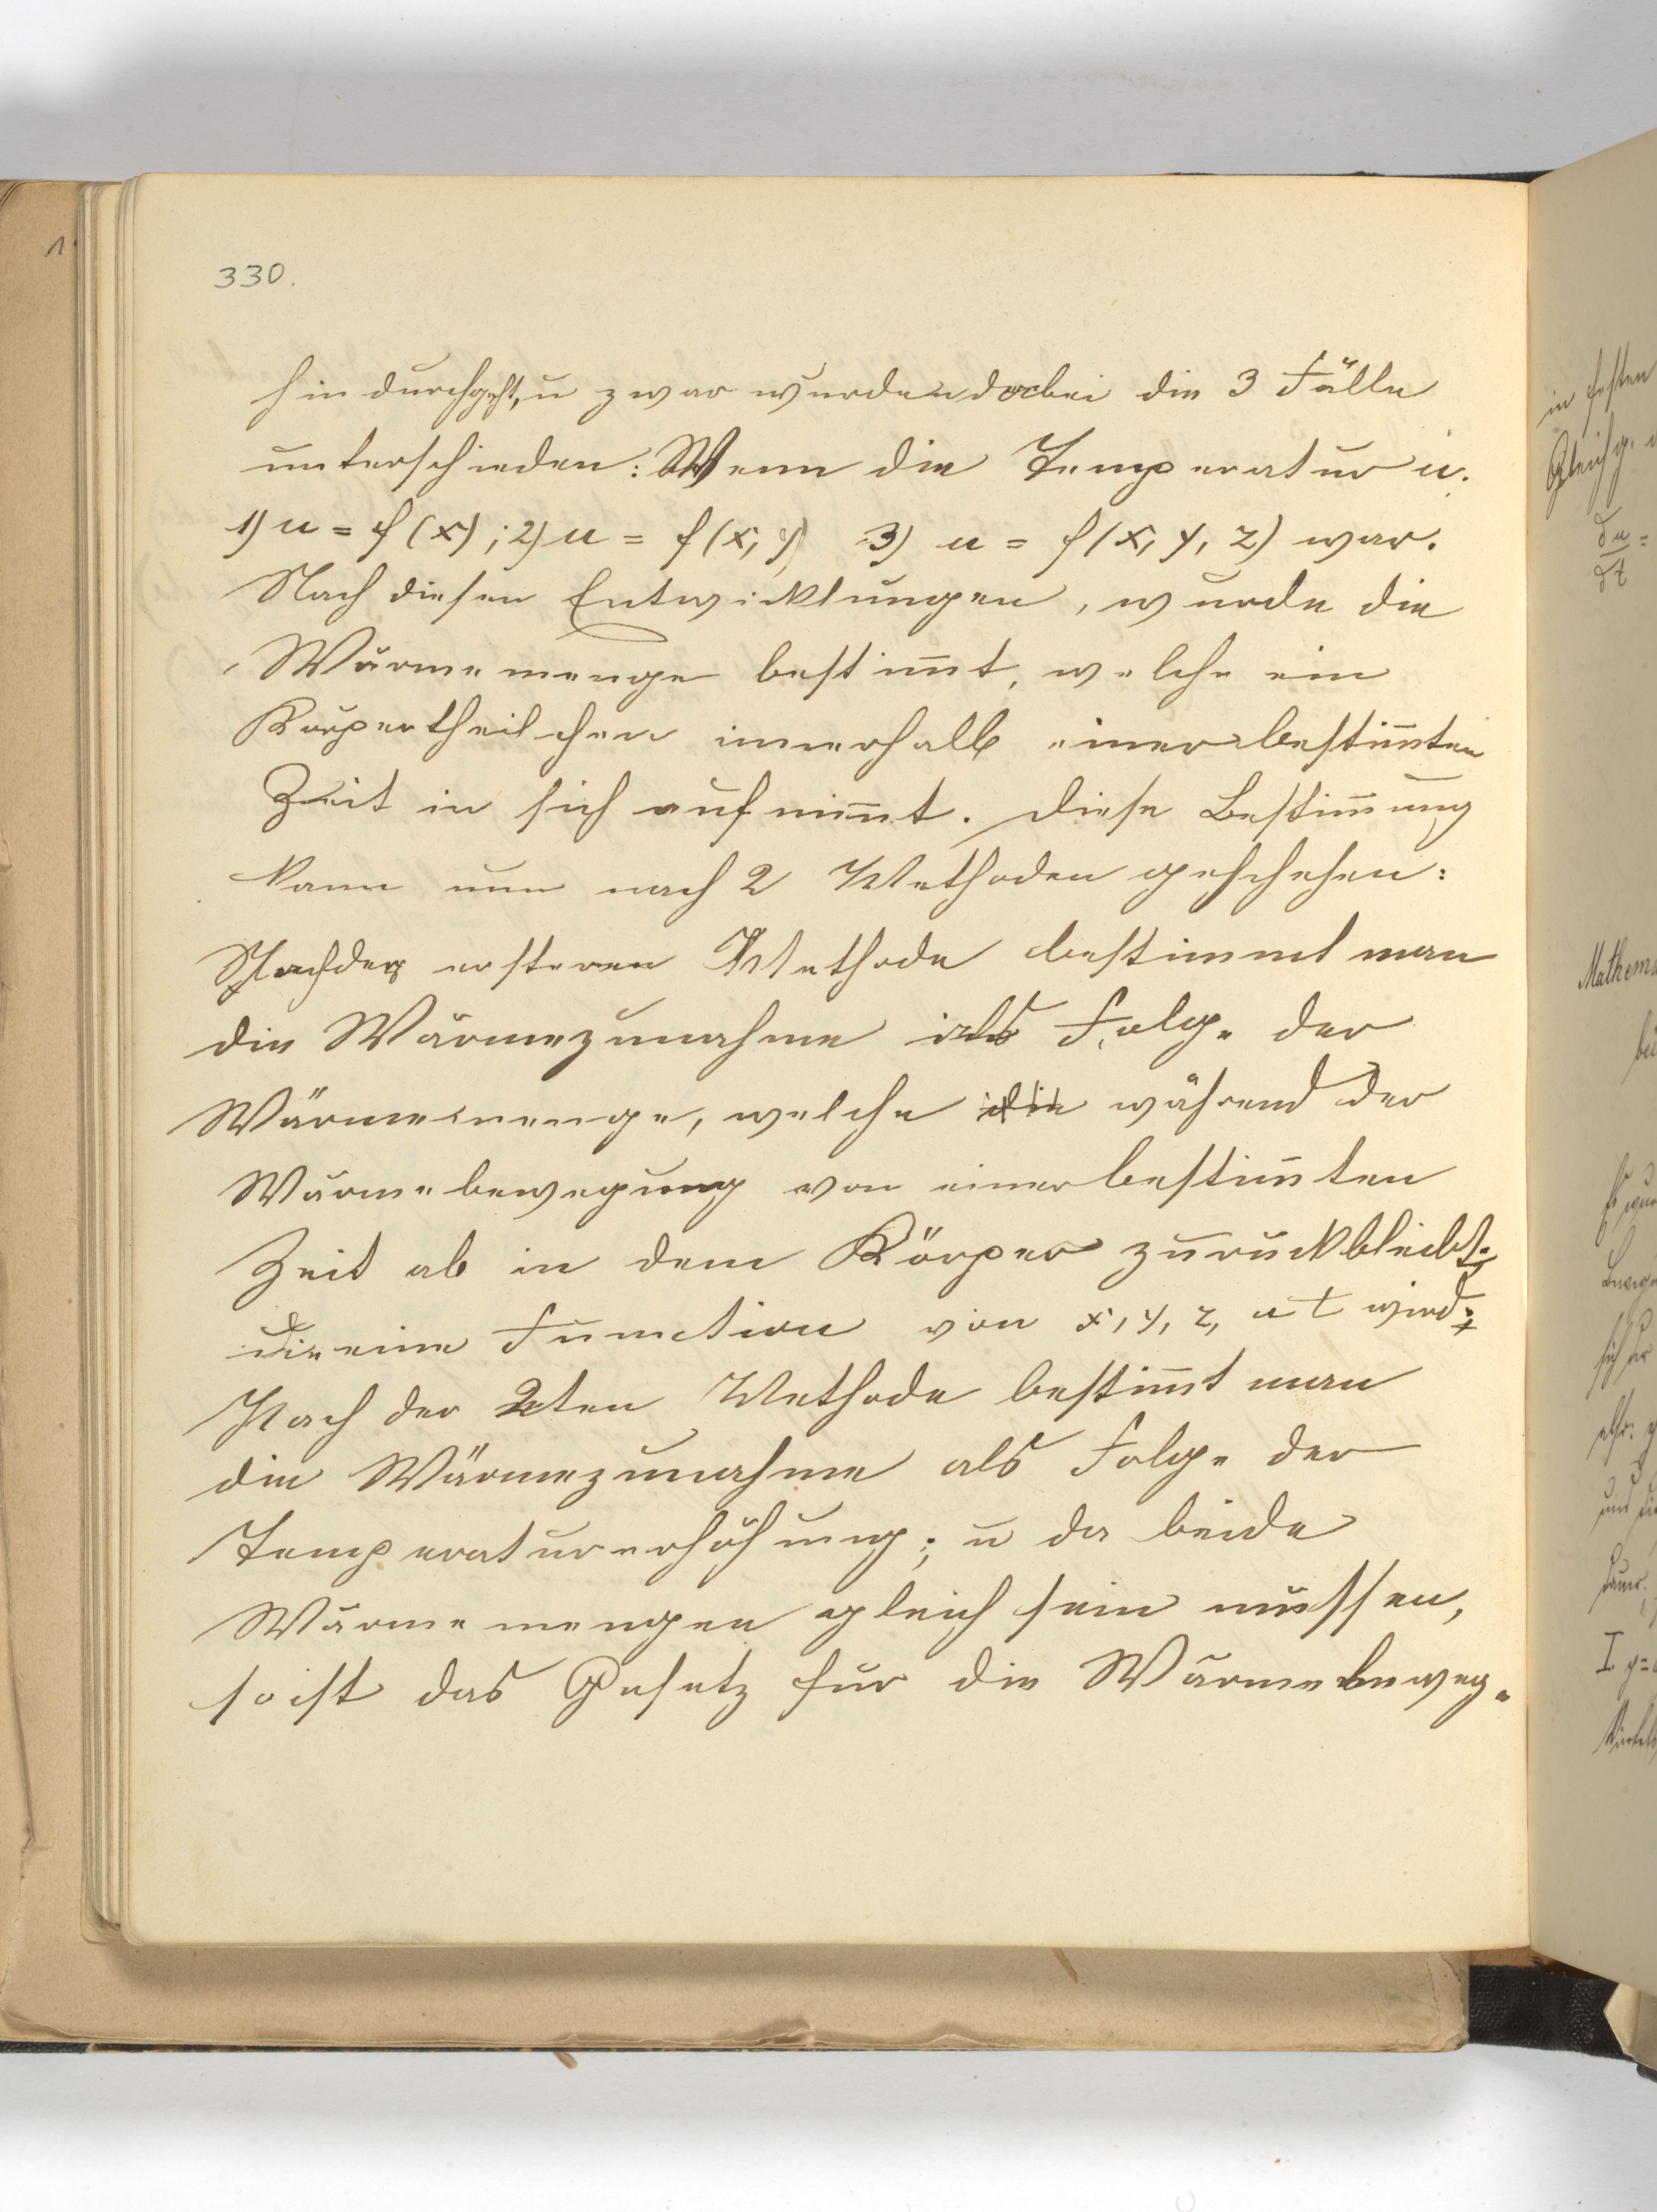 330.
hindurchgeht, u zwar wurden dabei die 3 Fälle
unterschieden: Wenn die Temperatur u.
1) u = f(x); 2) u = f(x, y) 3) u = f(x, y, z) war.
Nach diesen Entwicklungen, wurde die
Wärmemenge bestim̅t, welche ein
Körpertheilchen innerhalb einer bestim̅ten
Zeit in sich aufnim̅t. Diese Bestim̅ung
kann nun nach 2 Methoden geschehen:
Nach der ersteren Methode bestimmt man
die Wärmezunahme als Folge der
Wärmemenge, welche die während der
Wärmebewegung von einer bestim̅ten
Zeit ab in dem Körper zurückbleibt;
die eine Function von x, y, z, u t wird;
Nach der 2ten Methode bestim̅t man
die Wärmezunahme als Folge der
Temperaturerhöhung; u da beide
Wärmemengen gleich sein müssen,
so ist das Gesetz für die Wärmebeweg.
in festen
Gleichg.
du
dt
=
Mathema
bei
und die
I. y=